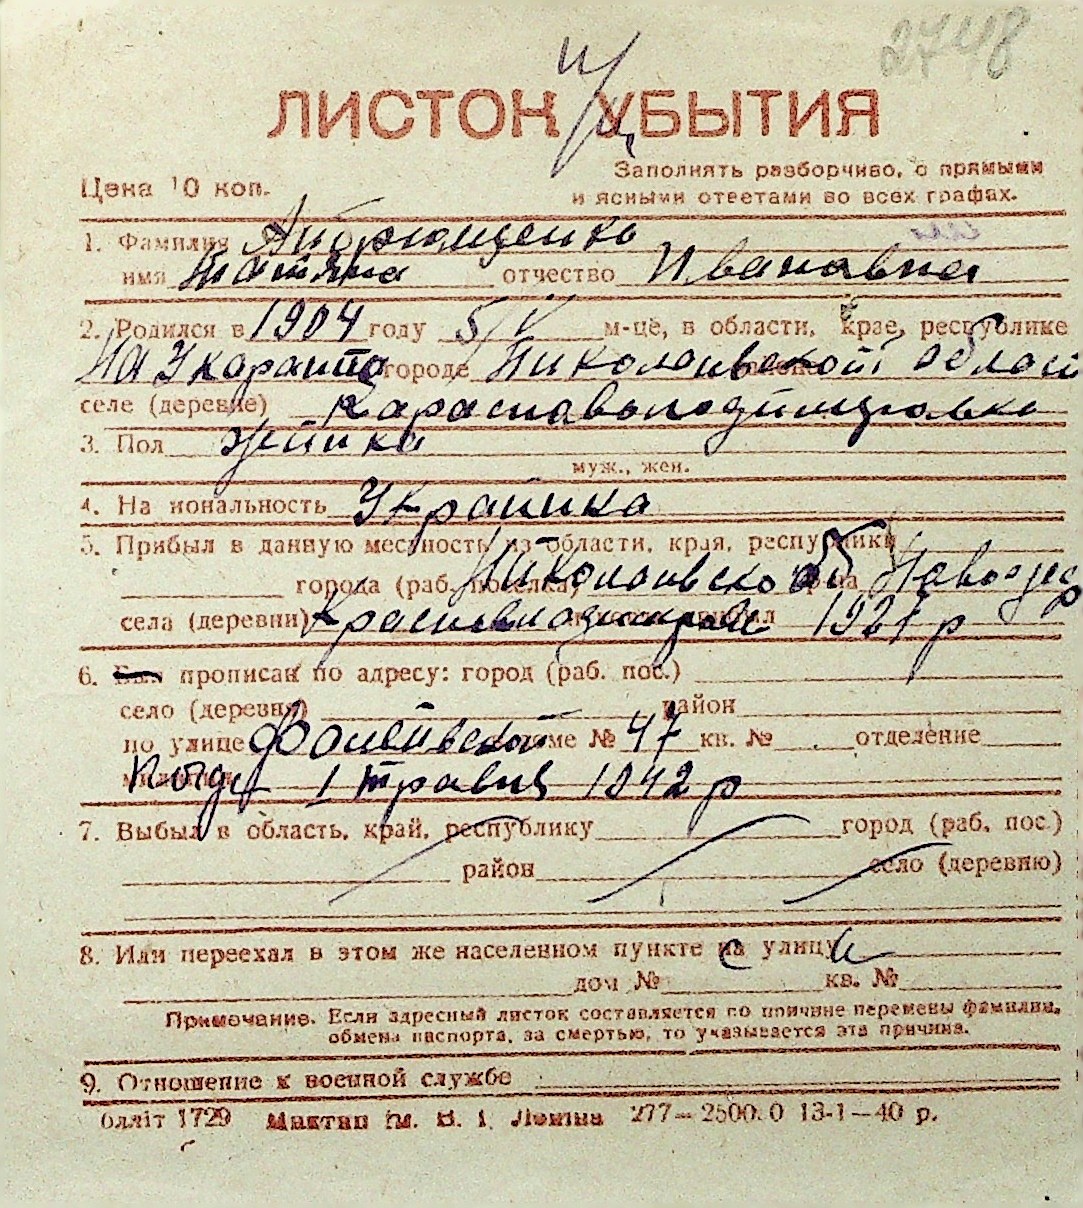 2748
ЛИСТОК УБЫТИЯ
Цена 10 коп.
Заполнять разборчиво, с прямыми
и ясными ответами во всех графах.
1. Фамилия
имя Татяна отчество Ивановна
2. Родился в 1904 году 5/V м-це, в области, крае, республике
На городе Николаивской област
селе (деревне)
3. Пол жінка
муж., жен.
4. На иональность Українка
5. Прибыл в данную местность из области, края, республики
города (раб. поселка) Николаивской об
села (деревни) 1927 р
6. Был прописан по адресу: город (раб. пос.)
село (деревня) район
по улице доме № 47 кв. № отделение
милиции 1 травня 1942 р
7. Выбыл в область, край, республику город (раб. пос.)
район село (деревню)
8. Или переехал в этом же населенном пункте на улицу
дом № кв. №
Примечание. Если адресный листок составляется по причине перемены фамилии,
обмена паспорта, за смертью, то указывается эта причина.
9. Отношение к военной службе
блліт 1729 им. В. І. Леніна 277—2500.0 13-1—40 р.